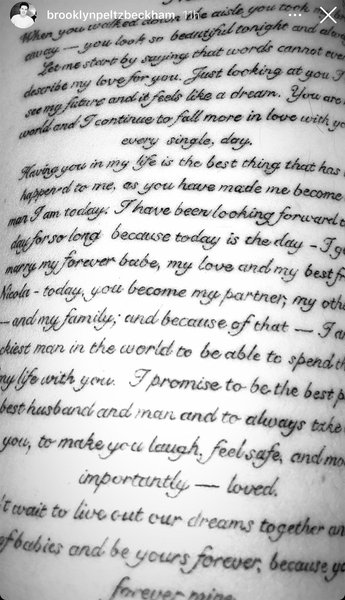 brooklynpeltzbeckham 11h
When you walked down the aisle you took
away — you look so beautiful tonight and
Let me start by saying that words cannot
describe my love for you. Just looking at you I
see my future and it feels like a dream. You are
world and I continue to fall more in love with
every single, day.
Having you in my life is the best thing that has
happen'd to me, as you have made me become
man I am today. I have been looking forward
day for so long because today is the day - I
marry my forever babe, my love and my best
Nicola - today, you become my partner, my
— and my family; and because of that — I
man in the world to be able to spend
my life with you. I promise to be the best
best husband and man and to always take
you, to make you laugh, feel safe, and
importantly — loved.
wait to live out our dreams together
of babies and be yours forever, because
forever mine